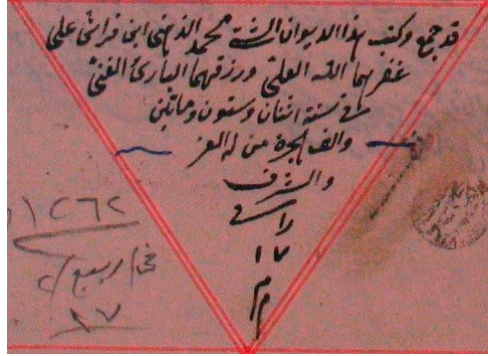 قد جمع وكتب هذا الديوان السيد محمد الذهنى ابن فراش على
غفر لهما الله العلى ورزقهما البارئ الغنى
فى سنة اثنان وستون وماتين
والف الهجرة من له العز
والشرف
را فى
١٧
م م
١٢٦٢
فى ربيع
١٧